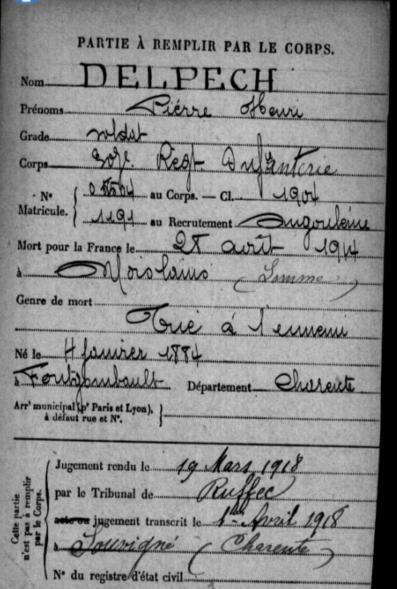 PARTIE À REMPLIR PAR LE CORPS.
Nom DELPECH
Prénoms Pierre Henri
Grade soldat
Corps Régt. Infanterie
N° au Corps. — Cl. 1904
Matricule. 1191 au Recrutement Angoulême
Mort pour la France le 28 1914
à Moislains (Somme)
Genre de mort
Tué à l'ennemi
Né le 4 janvier 1884
à Département Charente
Arr' municipal (p' Paris et Lyon),
à défaut rue et N°.
Cette partie
n'est pas à remplir
par le Corps.
Jugement rendu le 19 Mars 1918
par le Tribunal de Ruffec
acte ou jugement transcrit le 1er Avril 1918
à Souvigné (Charente)
N° du registre d'état civil